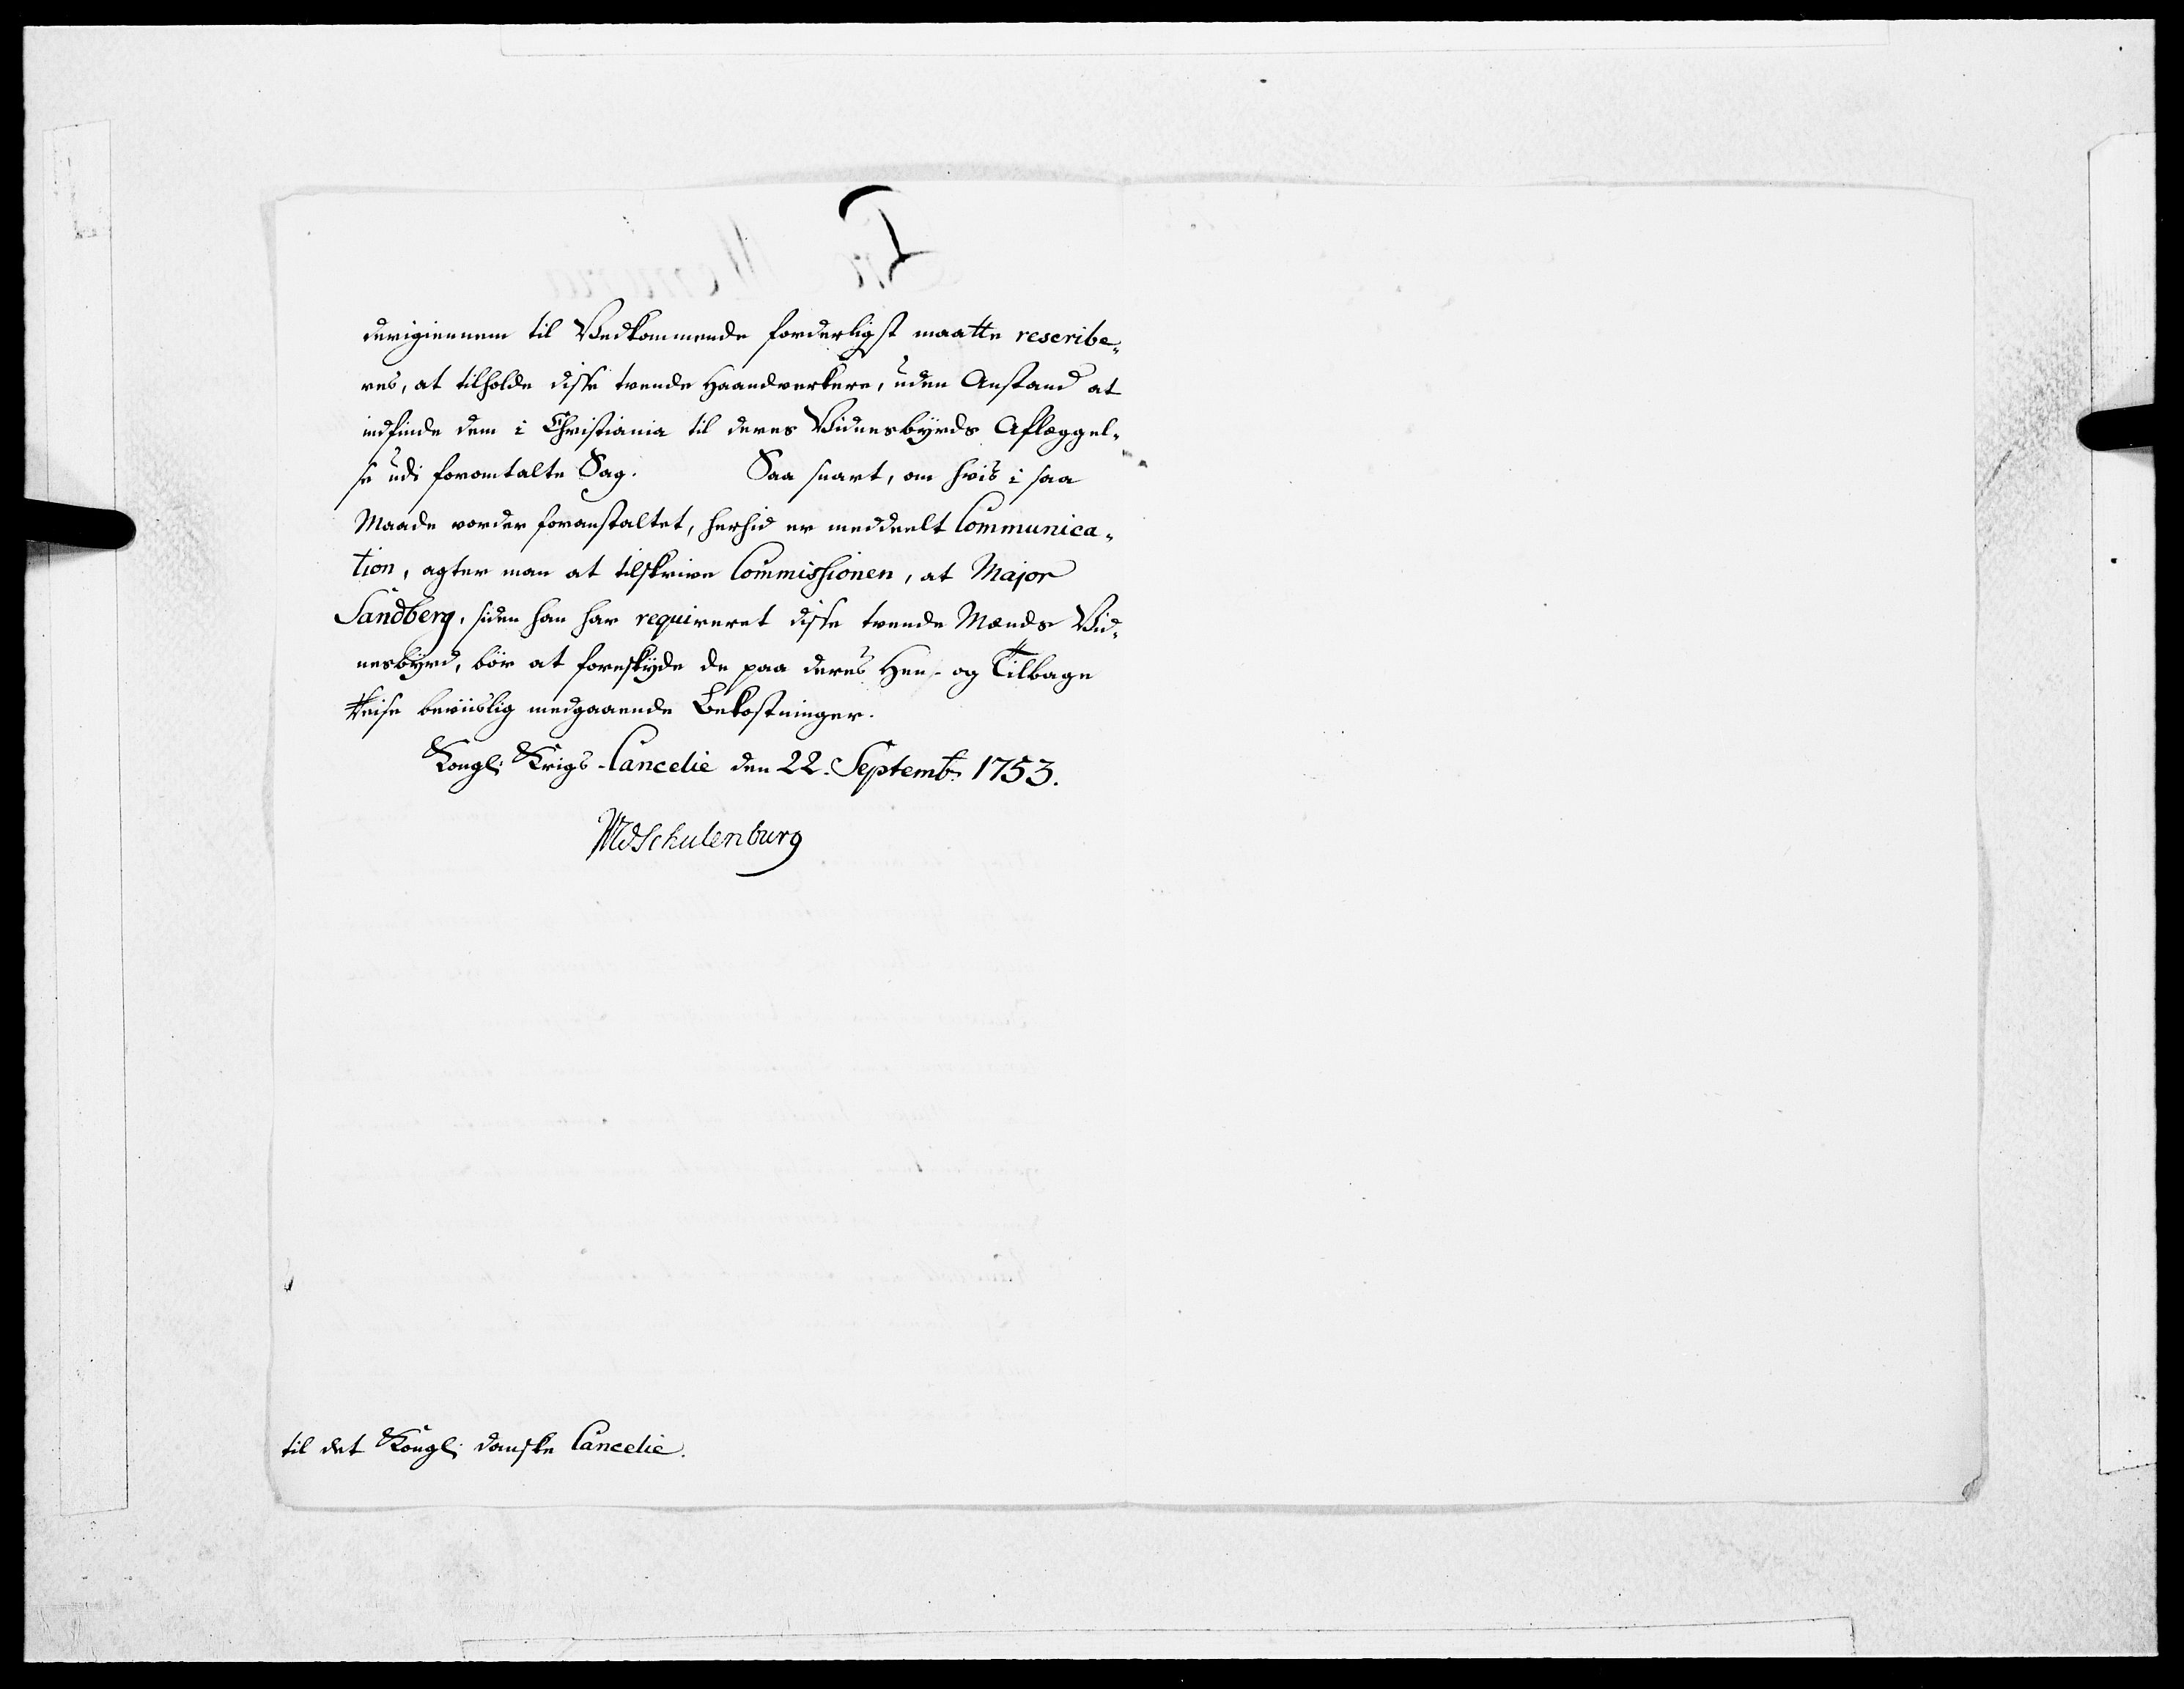 derigiennem til Vedkommende forderligst maatte rescribe„
res, at tilholde disse tvende Haandverkere, uden Anstand at
indfinde dem i Christiania til deres Vidnesbyrds Aflæggel„
se udi foromtalte Sag. Saa snart, om hvis i saa
Maade vorder foranstaltet, herhid er meddeelt Communica„
tion, agter man at tilskrive Commissionen, at Major
Sandberg, siden han har requireret disse tvende Mænds Vid„
nesbyrd, bör at foreskyde de paa deres Hen- og Tilbage
Reise beviislig medgaaende Bekostninger.
Kongl. Krigs-Cancelie den 22. Septembr. 1753.
WvSchulenburg
til det Kongl. danske Cancelie.